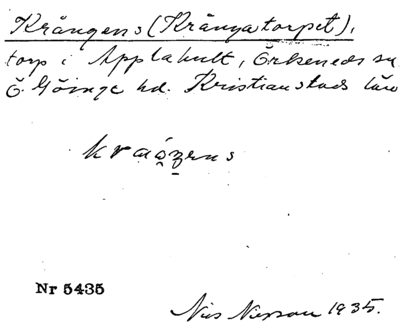 Krångens (Krångatorpet),
torp i Applahult, Örkeneds sn
Ö. Göinge hd. Kristianstads län
Nr 5435
Nils Nilsson 1935.